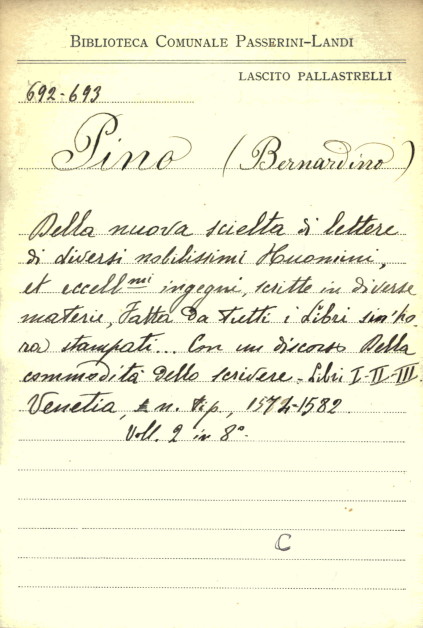 BIBLIOTECA COMUNALE PASSERINI-LANDI
LASCITO PALLASTRELLI
692-693
Pino (Bernardino)
Della nuova scielta di lettere
di diversi nobilissimi Huomini,
et eccell.mi ingegni, scritte in diverse
materie, Fatta da tutti i Libri sin ho,
ra stampati... Con un discorso Della
commodità dello scrivere. Libri I-II-III.
Venetia, n. tip., 1574-1582.
Voll. 2 in 8°.
C